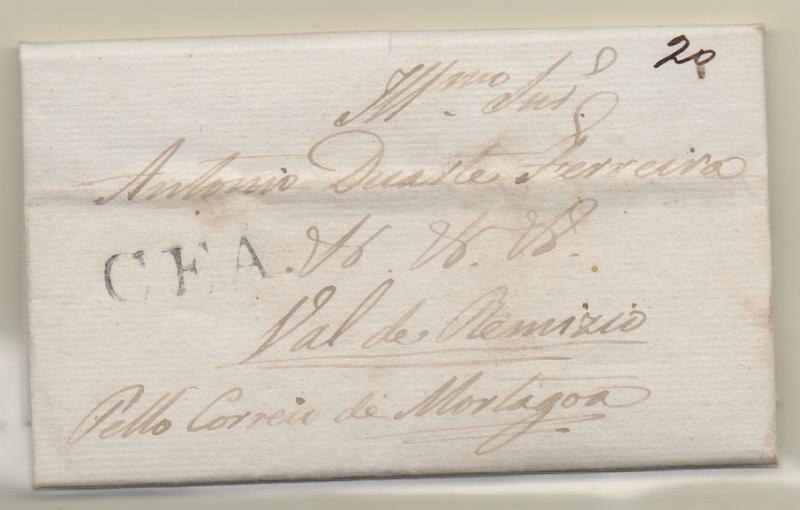 20
Ill.mo Snr
Antonio Duarte Ferreira
CFA. &. &. &.
Val de Remizio
Pello Correio de Mortagoa